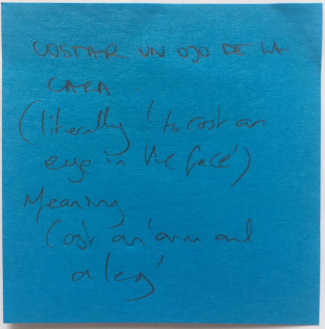 COSTAR UN OJO DE LA
CARA
(literally 'to cost an
eye in the face')
Meaning
Cost an 'arm and
a leg'